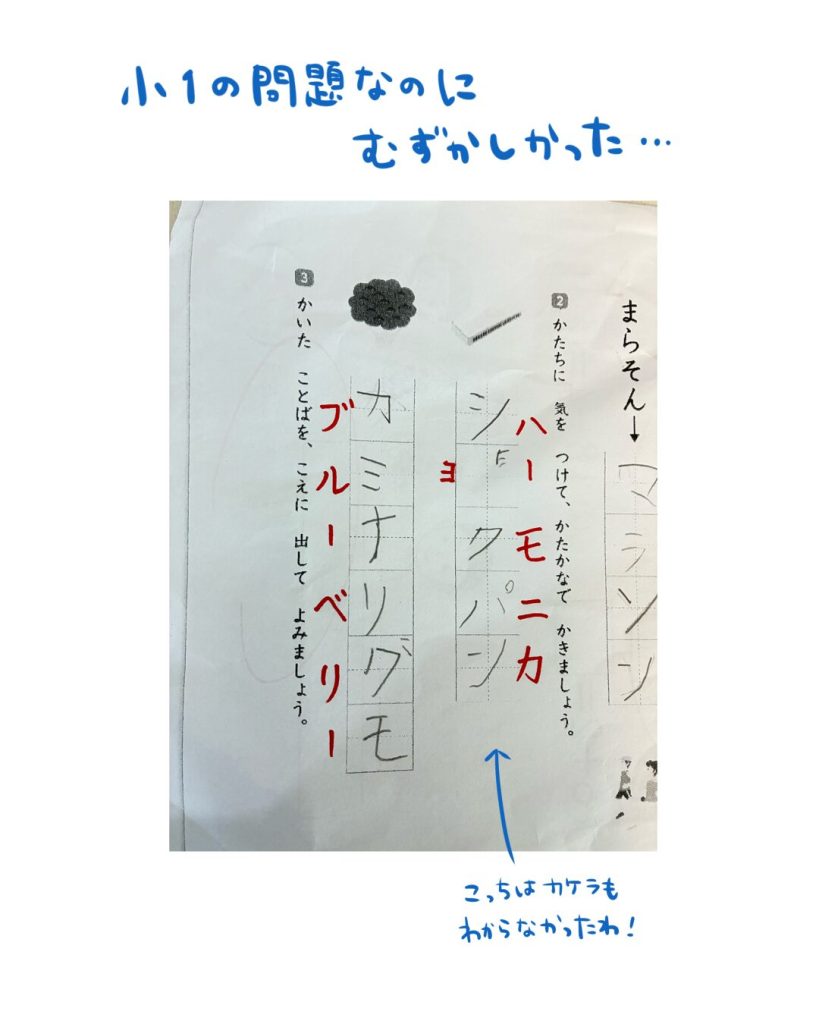 小1の問題なのに
むずかしかった…
まらそん→
マラソン
2 かたちに 気を つけて、かたかなで かきましょう。
ハーモニカ
ショクパン
ヨ
ブルーベリー
カミナリグモ
3 かいた ことばを、こえに 出して よみましょう。
こっちはカケラも
わからなかったわ!